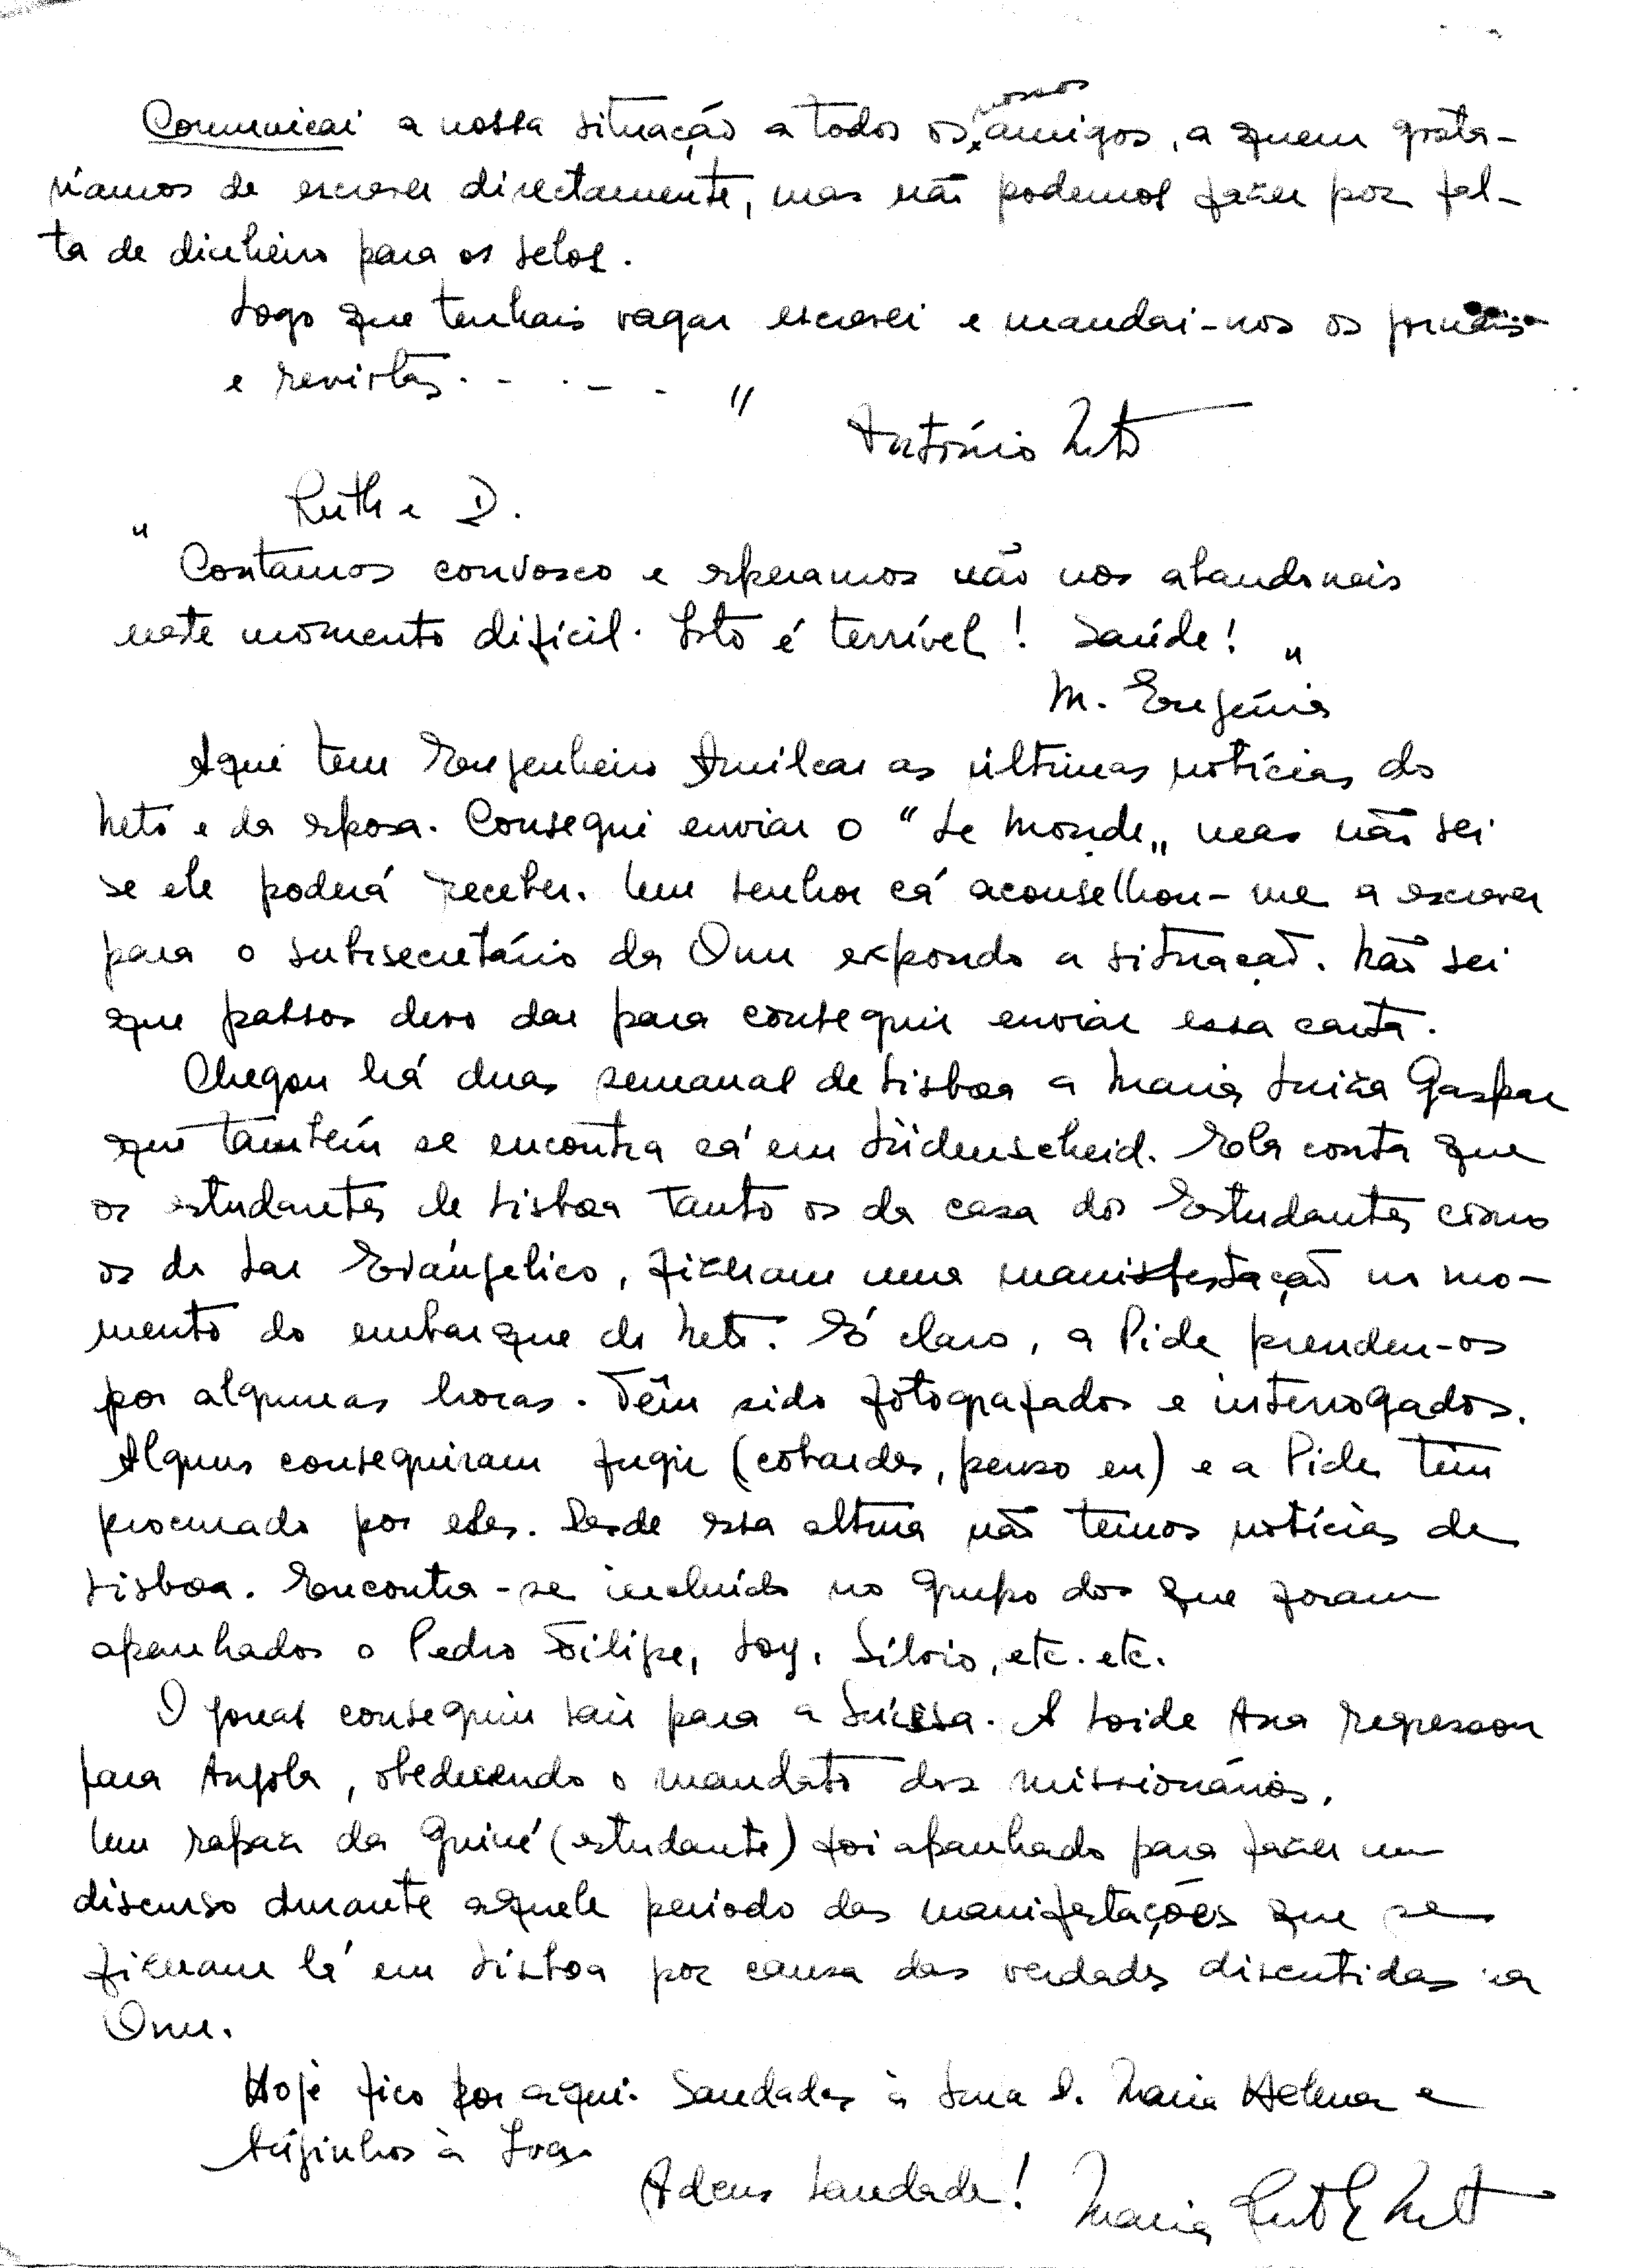 Comunicai a nossa situação a todos os nossos amigos, a quem gosta-
ríamos de escrever directamente, mas não podemos fazer por fal-
ta de dinheiro para os selos.
Logo que tenhais vagar escrevei e mandai-nos os jornais
e revistas. - . - . "
António Neto
Ruth e D.
" Contamos convosco e esperamos não nos abandoneis
neste momento difícil. Isto é terrível! Saúde! "
M. Eugénia
Aqui tem Engenheiro Amilcar as últimas notícias do
Neto e da esposa. Consegui enviar o "Le Monde" mas não sei
se ele poderá receber. Um senhor cá aconselhou-me a escrever
para o subsecretário da Onu expondo a situação. Não sei
que passos devo dar para conseguir enviar essa carta.
Chegou há duas semanas de Lisboa a Maria Luiza Gaspar
que também se encontra cá em Lüdenscheid. Ela conta que
os estudantes de Lisboa tanto os da casa dos Estudantes como
os do Lar Evángelico, fizeram uma manisfestação no mo-
mento do embarque do Neto. É claro, a Pide prendeu-os
por algumas horas. Têm sido fotografados e interrogados.
Alguns conseguiram fugir (cobardes, penso eu) e a Pide tem
procurado por eles. Desde essa altura não temos notícias de
Lisboa. Encontra-se incluído no grupo dos que foram
apanhados o Pedro Filipe, Loy, Sílvio, etc. etc.
O Jonas conseguiu sair para a Suissa. A Loide Ana regressou
para Angola, obedecendo o mandato dos missionários.
Um rapaz da Guiné (estudante) foi apanhado para fazer um
discurso durante aquele periodo das manifestações que se
fizeram lá em Lisboa por causa das verdades discutidas na
Onu.
Hoje fico por aqui. Saudades à Sua D. Maria Helena e
beijinhos à Iva.
Adeus saudade! Maria Ruth Neto